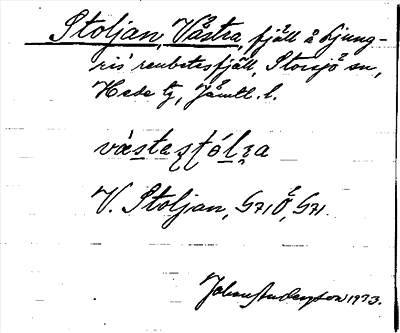 Stoljan, Västra, fjäll å Ljung-
ris renbetesfjäll, Storsjö sn,
Hede tg, Jämtl. l.
västastól
V. Stoljan, G71Ö, G71.
1973.